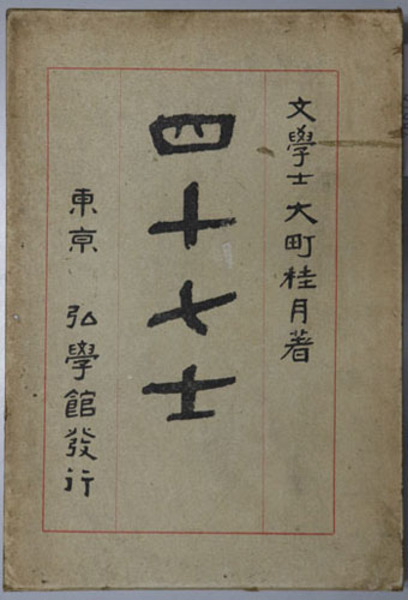 文學士 大町桂月著
四十七士
東京 弘學館發行